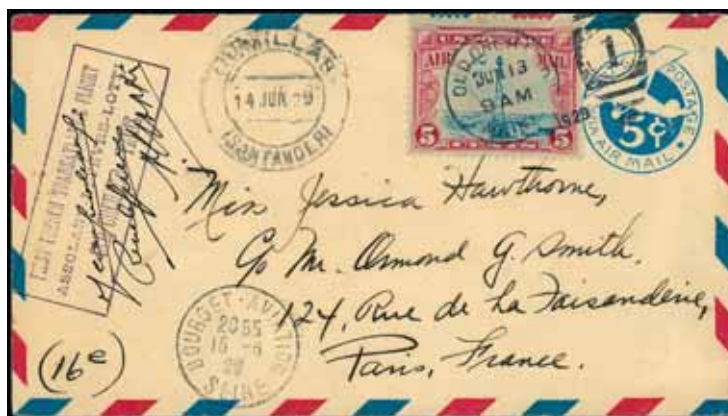 FIRST FRENCH TRANSATLANTIC FLIGHT
COMILLAS
14 JUN 29
(SANTANDER)
AIR MAIL
5 5
OLD ORCHARD
JUN 13
9 AM
1929
MAINE
1
POSTAGE
5¢
VIA AIR MAIL
Miss Jessica Hawthorne,
c/o Mr. Ormond G. Smith.
124, Rue de La Faisanderie,
Paris, France.
BOURGET-AVIATION
2055
16 -6
29
SEINE
(16e)